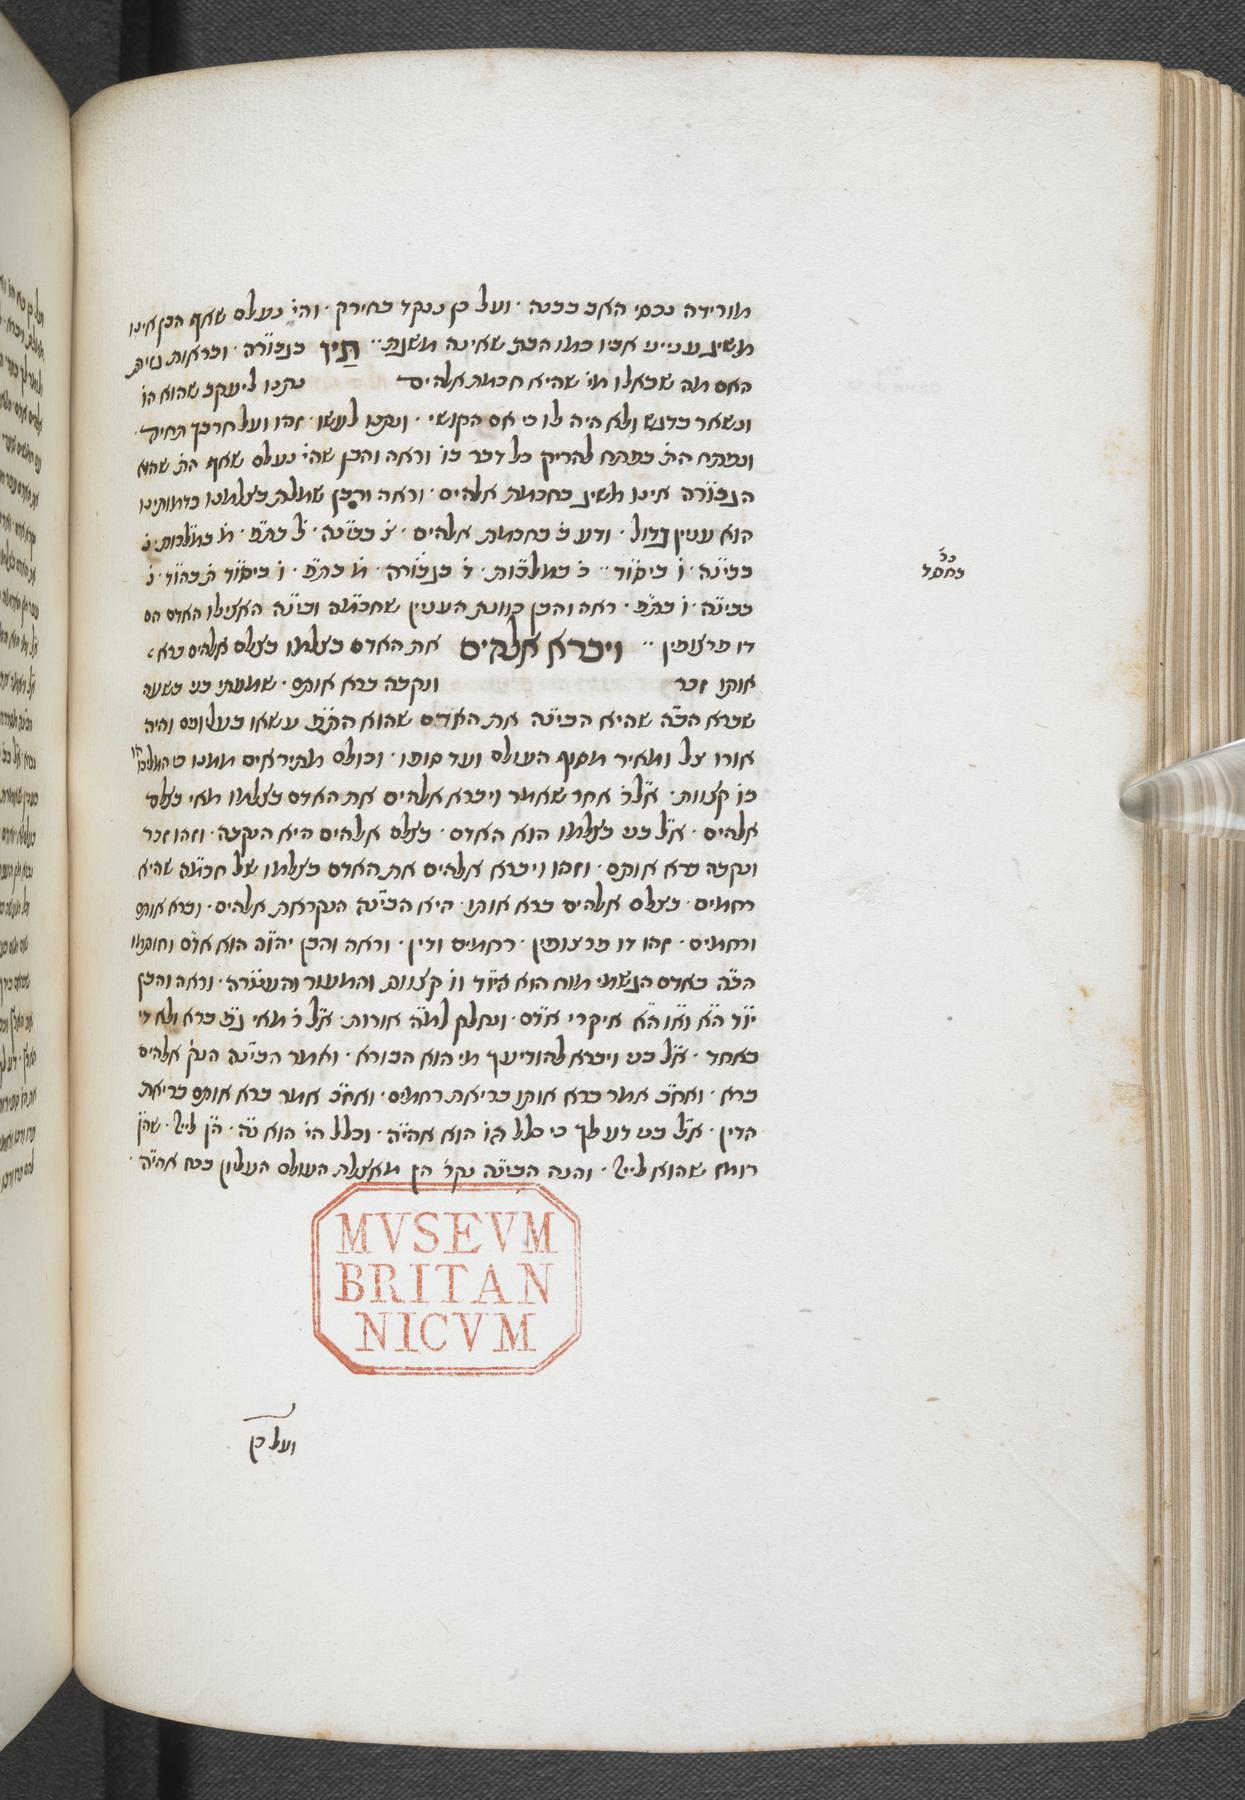 מורידה נכסי האב בבנה · ועל כן ננקד בחירק · והי׳ נעלם שאף הבן אינו
משיג ענייני אביו כמו הבת שאינה משגת ·· תֵיךָ בגבורה · ובראות
האם מה שבאלו מי׳ שהיא חכמת אלהים נתנו ליעקב שהוא הו׳
ונשאר בדגש ולא היה לו כי אם הקושי · ונתנו לעשו · זהו ועל חרבך תחיה ·
ונפתח הת׳ בפתח להריק כל דבר בו׳ וראה והבן שהי׳ נעלם שאף הת׳ שהוא
הגבורה אינו משיג בחכמת אלהים · וראה והבן שמלת בצלמנו כדמותינו
הוא ענין גדול · ודע ב׳ בחכמת אלהים · צ׳ בבינה · ל׳ בת״ת · מ׳ במלכות · נ׳
בבינה · ו׳ ביסוד ·· כ׳ במלכות · ד׳ בגבורה · מ׳ בת״ת · ו׳ ביסוד ת׳ בהוד · נ׳
בבינה · ו׳ בת״ת · ראה והבן כוונת הענין שחכמה ובינה האצילו האדם הם
דו פרצופין ·· ויברא אלקים את האדם בצלמו בצלם אלהים ברא
אותו זכר ונקבה ברא אותם · שמעתי כי בשעה
שברא הב״ה שהיא הבינה את האדם שהוא הת״ת עשאו בעליונים והיה
אורו צל ומאיר מסוף העולם ועד סופו · וכולם מתיראים ממנו כי המליכו
בו׳ קצוות · א״ל ר׳ אחר שאמר ויברא אלהים את האדם בצלמו מאי בצלם
אלהים · א״ל בני בצלמו הוא האדם · בצלם אלהים היא הנקבה · וזהו זכר
ונקבה ברא אותם · וזהו ויברא אלהים את האדם בצלמו של חכמה שהיא
רחמים · בצלם אלהים ברא אותו · היא הבינה הנקראת אלהים · וברא אותם
ורחמים · זהו דו פרצופין · רחמים ודין · וראה והבן יהו״ה הוא אדם וחותמו
הב״ה באדם הגשמי מוח הוא היו״ד וו׳ קצוות והמעור והעטרה · וראה והבן
יו״ד ה״א וא״ו ה״א איקרי אדם · ונחלק למ״ה אורות · א״ל ר׳ מאי ג״פ ברא ולא די
באחד · א״ל בני ויברא להודיעך מי הוא הבורא · ואמר הבינה הנק׳ אלהים
ברא · ואח״כ אמר ברא אותו בריאת רחמים · ואח״כ אמר ברא אותם בריאת
הדין · א״ל בני דע לך כי כלל הו׳ הוא אהי״ה · וכלל הי׳ הוא
רומז שהוא · והנה הבינה נקר׳ הן מאצלת העולם העליון בכח אהי״ה ·
בחסד
MVSEVM
BRITAN
NICVM
ועל כן